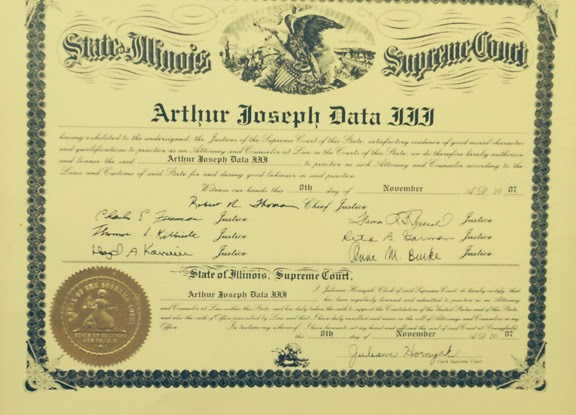 State of Illinois Supreme Court
Arthur Joseph Data III
having exhibited to the undersigned, the Justices of the Supreme Court of this State, satisfactory evidence of good moral character
and qualifications to practice as an Attorney and Counselor at Law in the Courts of this State, we do therefore hereby authorize
and license the said Arthur Joseph Data III to practice as such Attorney and Counselor according to the
Laws and Customs of said State for and during good behavior in said practice.
Witness our hands this 8th day of November A.D. 20 07
Robert R. Thomas Chief Justice
Charles E Freeman Justice Justice
Thomas L Kilbride Justice Rita B Garman Justice
Lloyd A Karmeier Justice Anne M. Burke Justice
State of Illinois, Supreme Court,
I, Juleann Hornyak, Clerk of said Supreme Court, do hereby certify, that
Arthur Joseph Data III has been regularly licensed and admitted to practice as an Attorney
and Counselor at Law within this State and has duly taken the oath to support the Constitution of the United States and of this State,
and also the oath of Office prescribed by Law and that I have duly enrolled said name in the roll of Attorneys and Counselors in my
Office. In testimony whereof, I have hereunto set my hand and affixed the seal of said Court at Springfield
this 8th day of November A.D. 20 07
Juleann Hornyak
Clerk Supreme Court